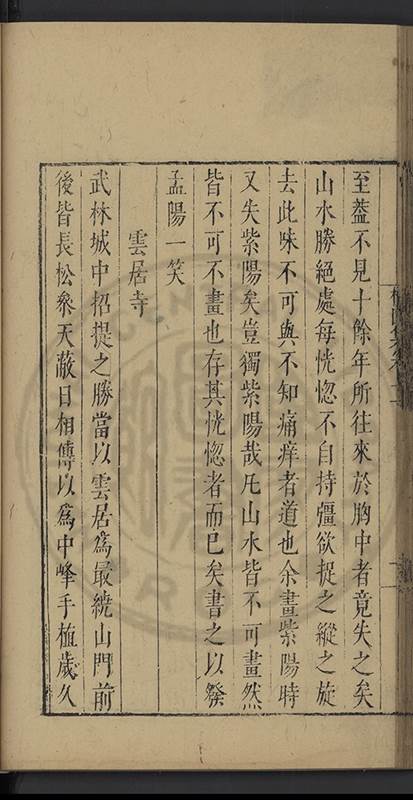 至蓋不見十餘年所往來於胸中者竟失之矣
山水勝絕處每恍惚不自持彊欲捉之縱之旋
去此味不可與不知痛痒者道也余畫紫陽時
又失紫陽矣豈獨紫陽哉凡山水皆不可畫然
皆不可不畫也存其恍惚者而已矣書之以發
孟陽一笑
雲居寺
武林城中招提之勝當以雲居爲最繞山門前
後皆長松參天蔽日相傳以爲中峰手植歲久